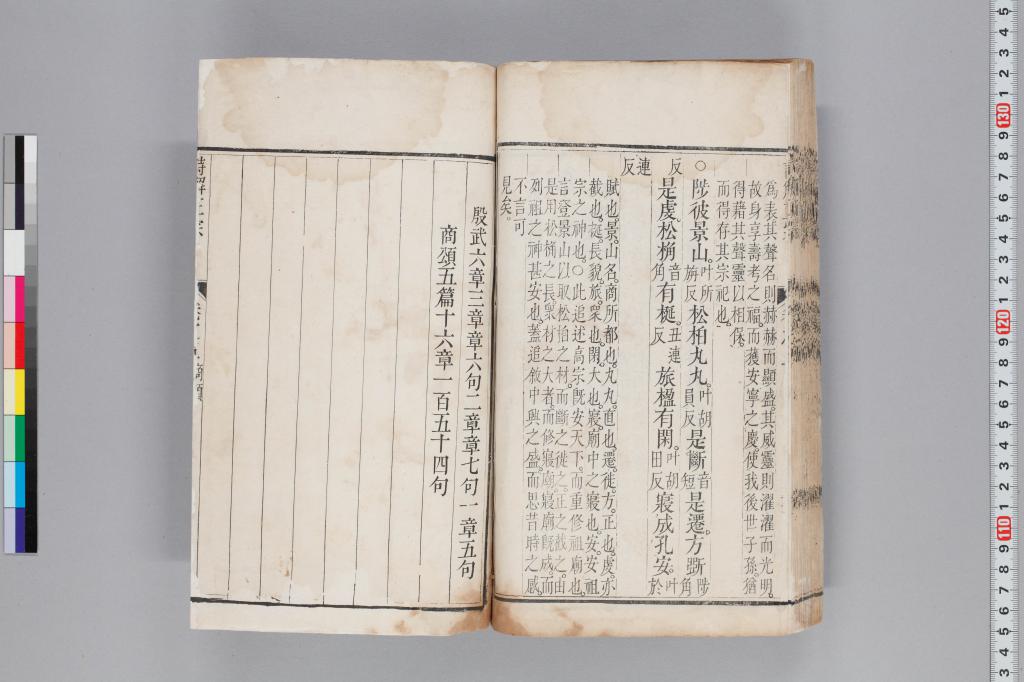 為表其聲名則赫赫而顯盛其威靈則濯濯而光明
故身享壽考之福而獲安寧之慶使我後世子孫猶
得藉其聲靈以相保
而得存其宗祀也
○陟彼景山叶所旃反松柏丸丸叶胡員反是斷音短是遷方斲陟角
反是虔松桷音角有梴丑連反旅楹有閑叶胡田反寢成孔安叶於
連反
賦也景山名商所都也丸丸直也遷徙方正也虔亦
截也梴長貌旅眾也閑大也寢廟中之寢也安安祖
宗之神也○此追述高宗既安天下而重修祖廟也
言登景山以取松柏之材而斷之徙之正之截之由
是用松桷之長眾材之大者而修寢廟寢廟既成而
列祖之神甚安也蓋追敘中興之盛而思昔時之感
不言可
見矣
殷武六章三章章六句二章章七句一章五句
商頌五篇十六章一百五十四句